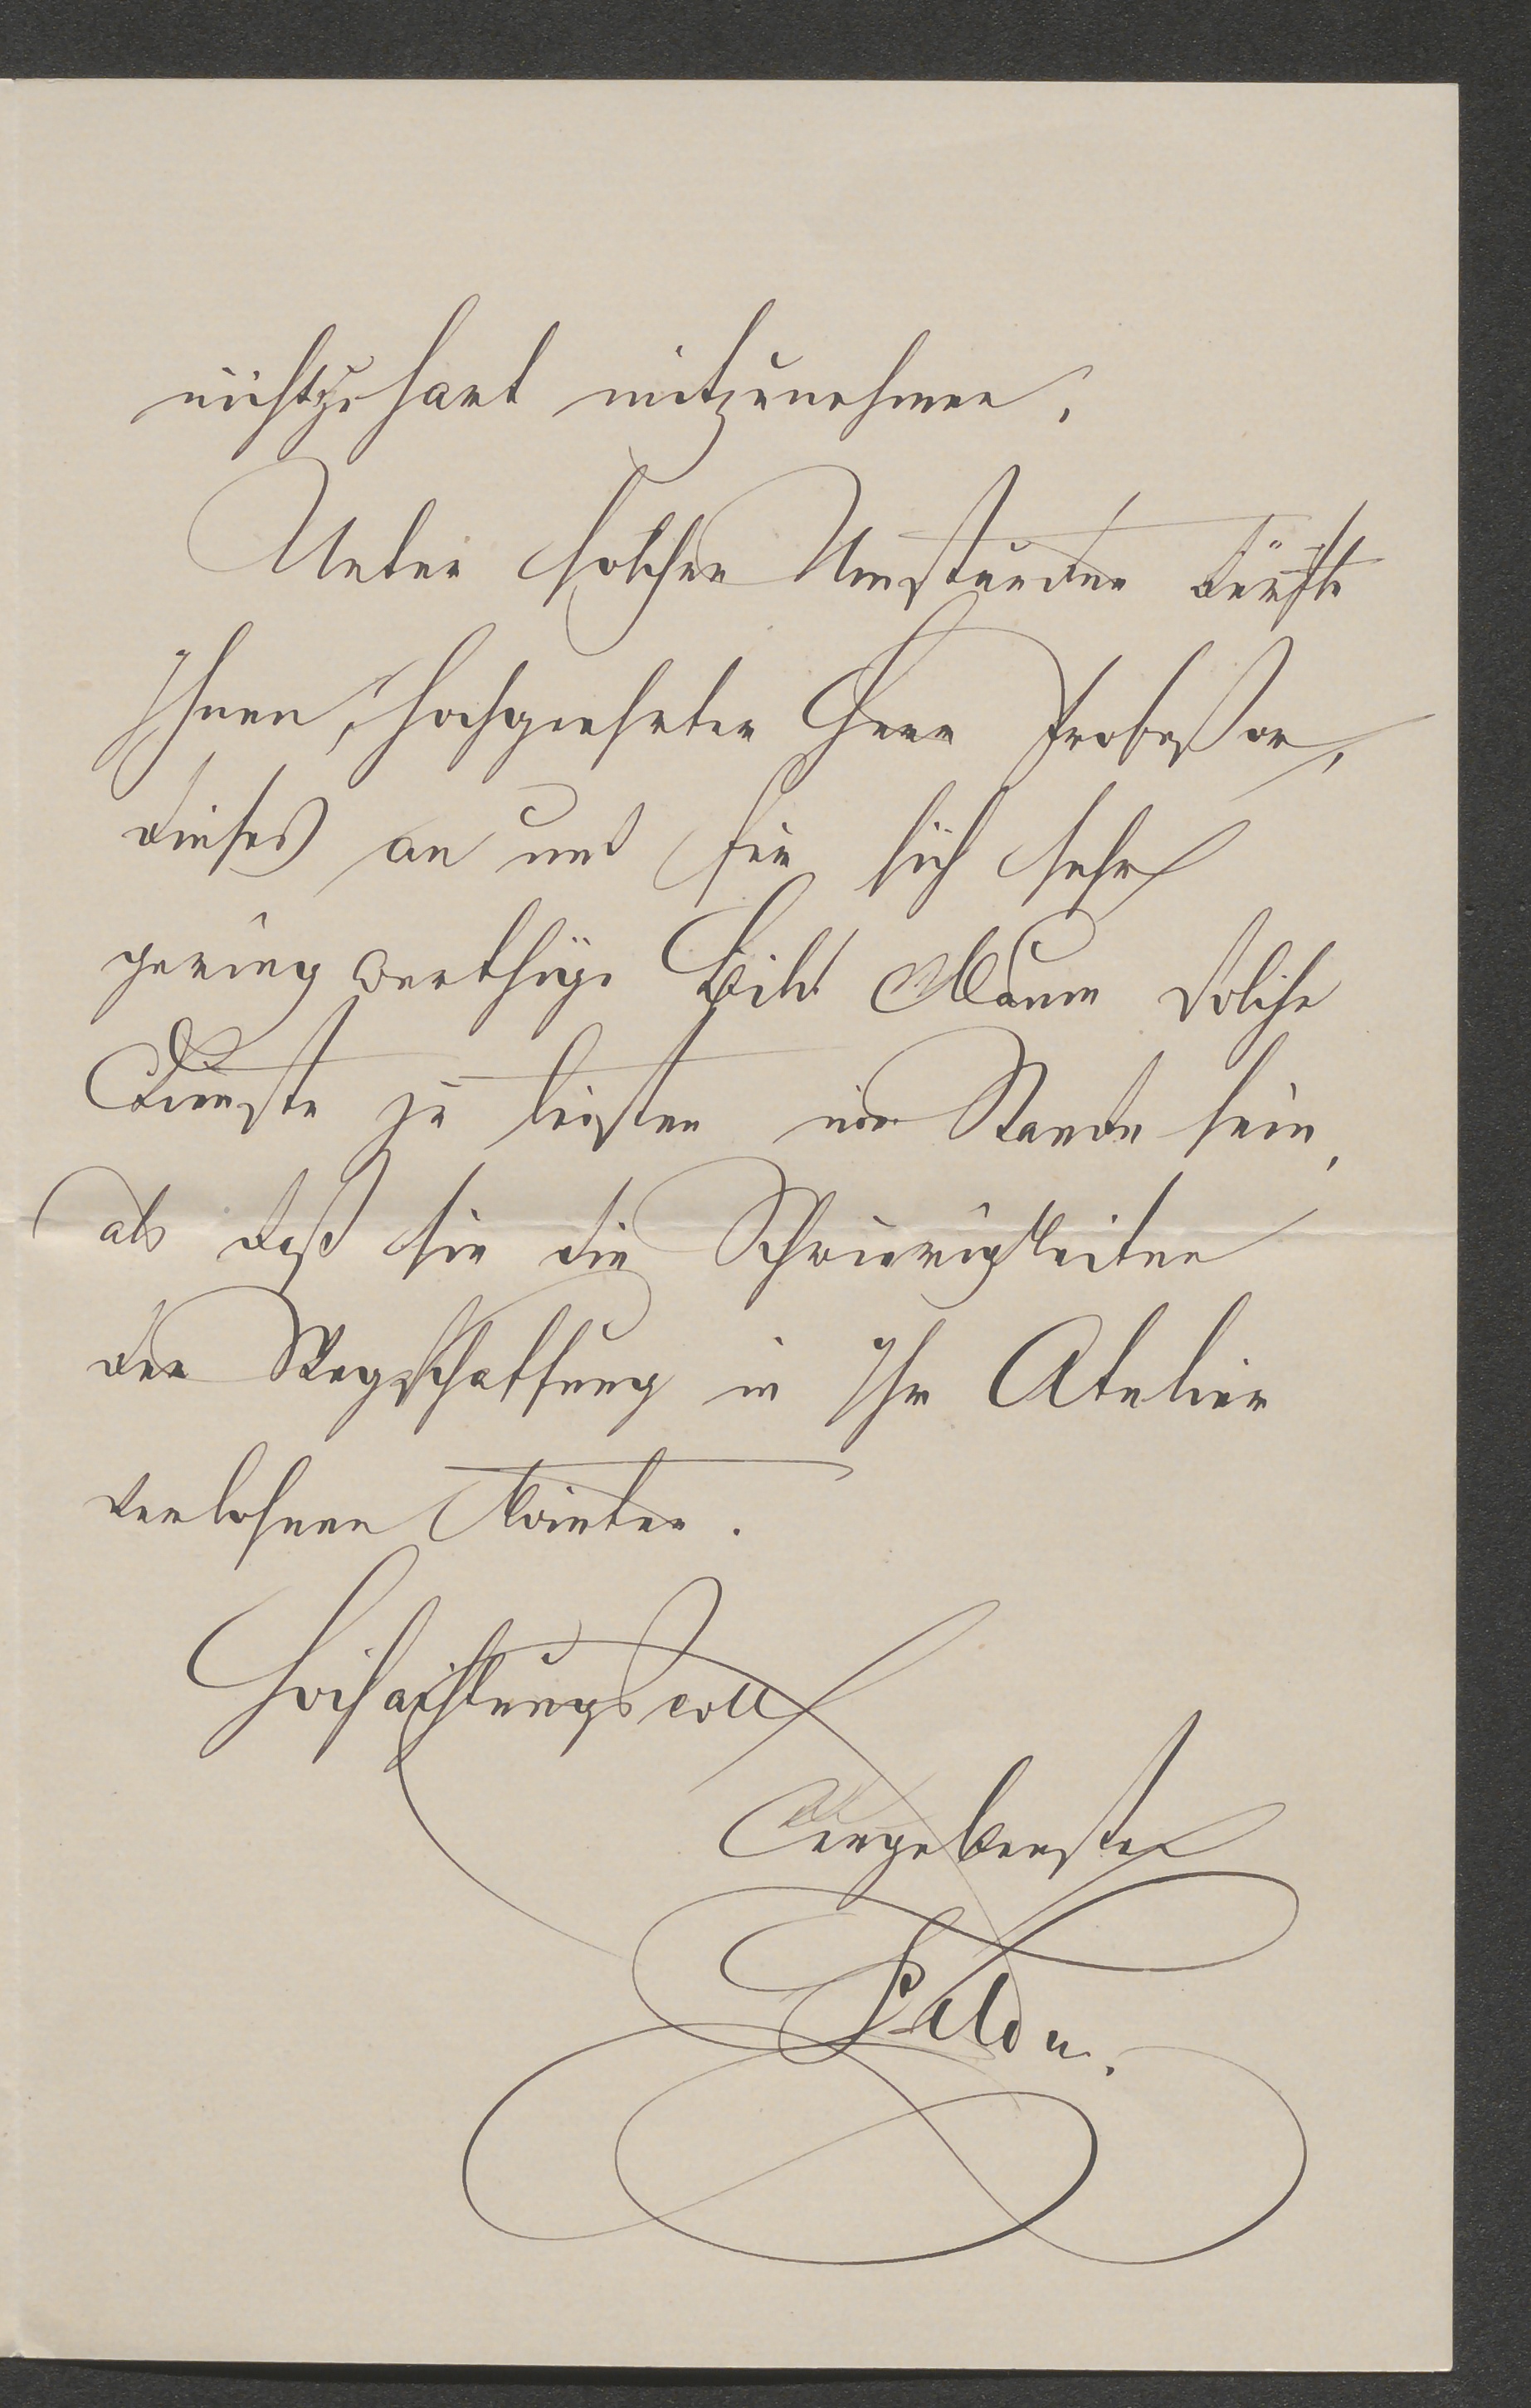 nicht zu hart mitzunehmen.
Unter solchen Umständen dürfte
Ihnen, hochgeehrter Herr Profeßor,
dieses an und für sich sehr
gering werthige Bild kaum solche
Dienste zu leisten im Stande sein,
als daß sie die Schwierigkeiten
der Wegschaffung in Ihr Atelier
verlohnen könnten.
Hochachtungsvoll
Ergebenster